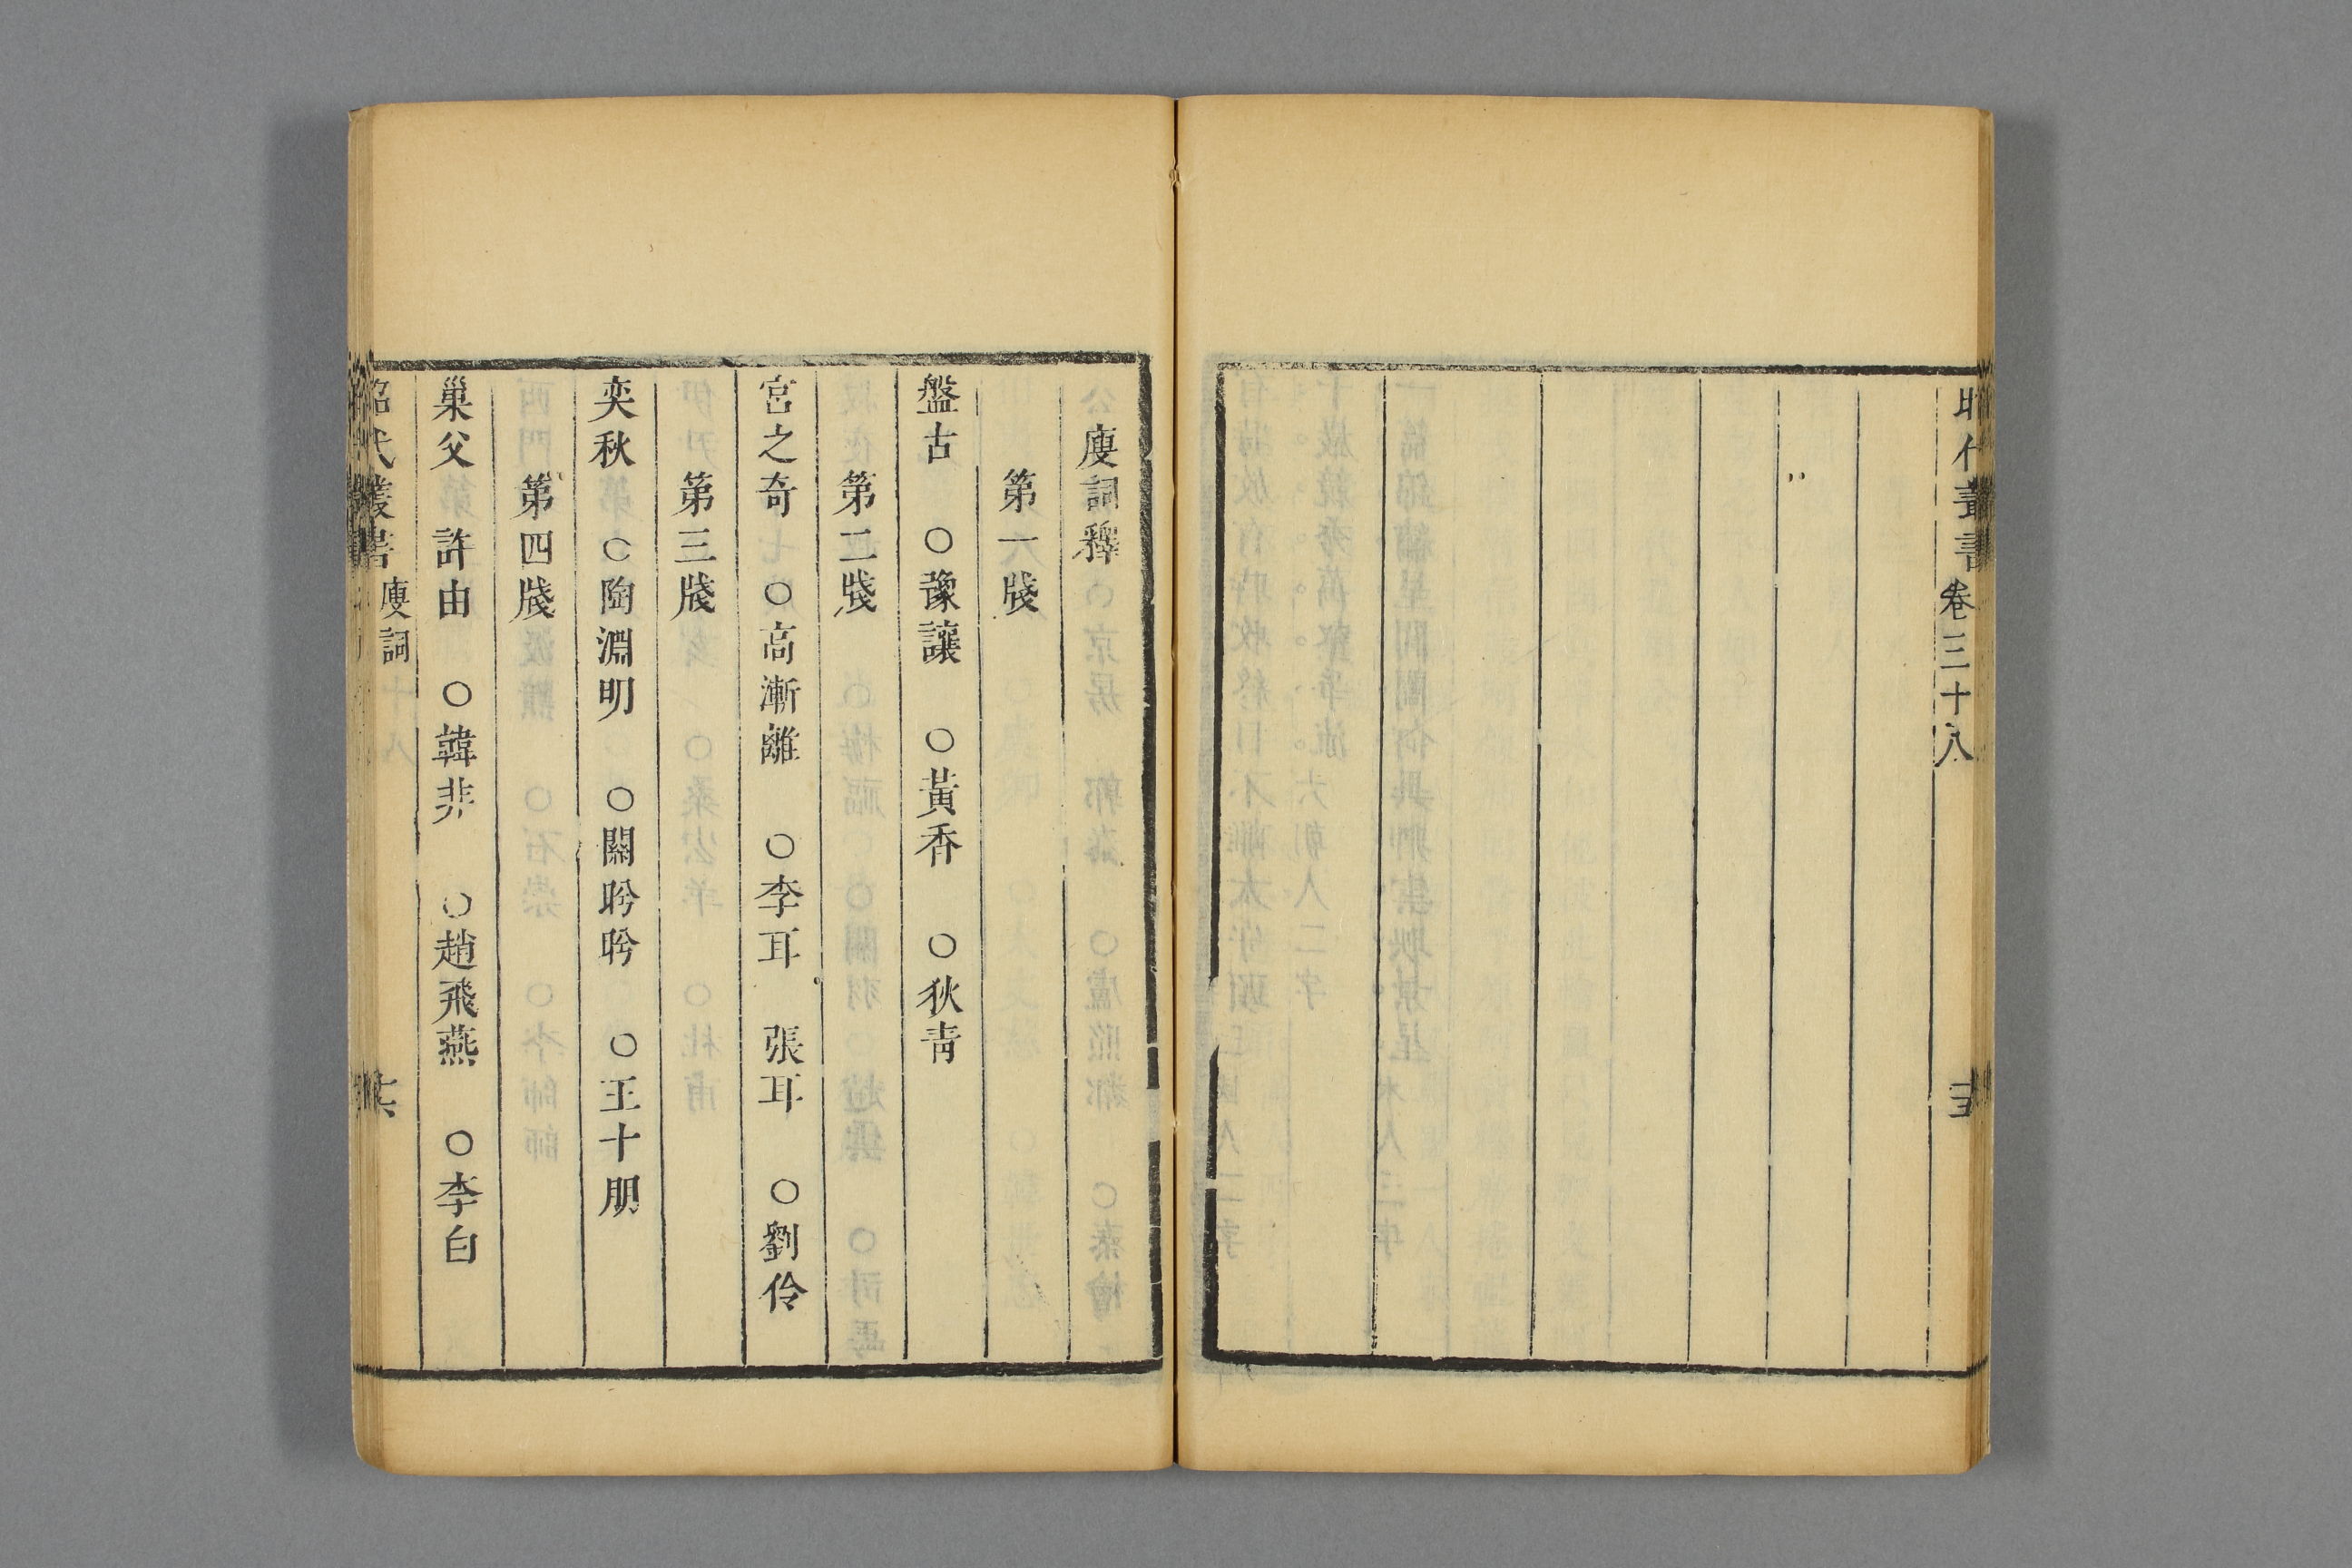 昭代叢書 卷三十八 十五
廋詞釋
第一牋
盤古 ○豫讓 ○黃香 ○狄青
第二牋
宮之奇 ○高漸離 ○李耳 張耳 ○劉伶
第三牋
奕秋 ○陶淵明 ○關盼盼 ○王十朋
第四牋
巢父 許由 ○韓非 ○趙飛燕 ○李白
昭代叢書 廋詞 十六